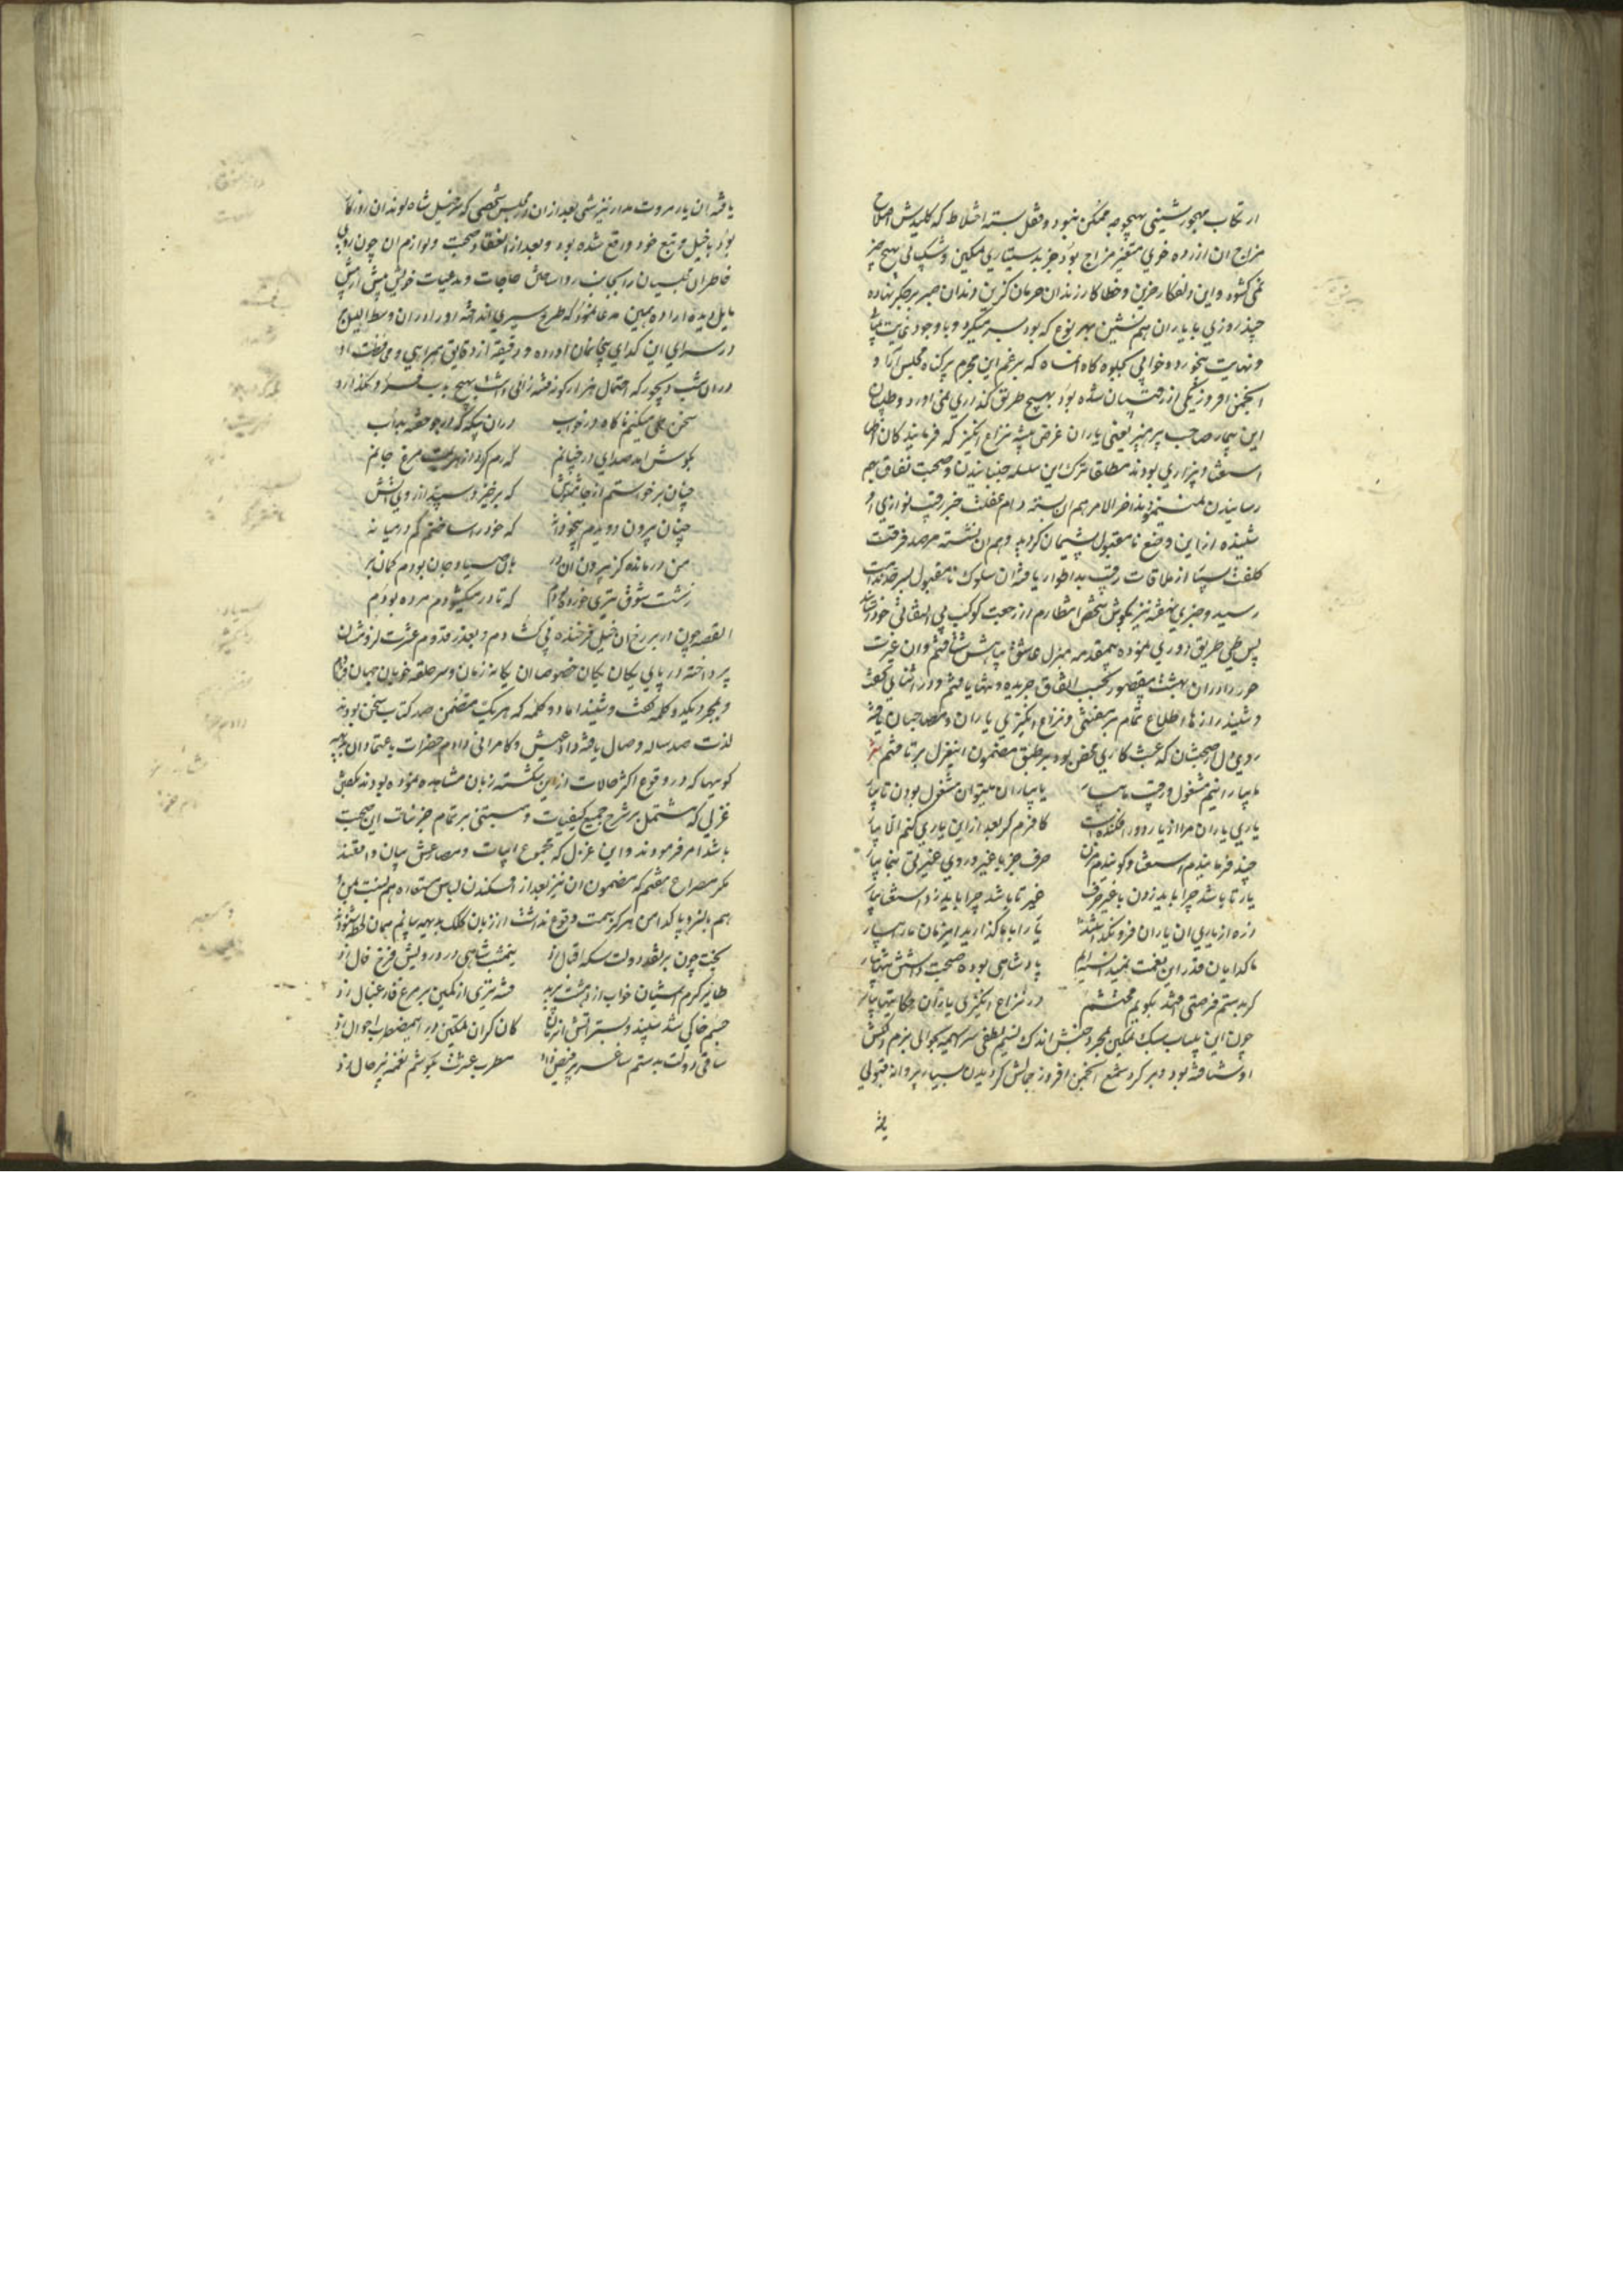 ارتکاب مهجور نشینی بهیچوجه ممکن نبود و قفل بسته اختلاط که کلیدش اصلاح
مزاج ان ازرده خوی متغیر مزاج بود جز بدستیاری تمکین و شکیبائی بهیچ چیز
نمی کشود و این دلفکار حزین و خطا کار زندان حرمان کزین دندان صبر بر جکر نهاده
چند روزی با یاران هم نشین بهر نوع که بود بسر میکرد و با وجود
و نهایت بیخورد و خوابی کاه کاه که برغم این مجرم پرکناه مجلس ارا و
انجمن افروز یکی از رقیبان شده بود بهیچ طریق کذری نمی اورد و طبیبان
این بیمار صاحب پرهیز یعنی یاران غرض پیشه نزاع انکیز که فرمایندکان
استغنا و بیزاری بودند مطلقا ترک این سلسله جنبانیدن و صحبت نفاق بهم
رسانیدن نمی نمودند اخر الامر هم ان بسته دام غفلت خبر رقیب نوازی او
شنیده از این وضع نامقبول پشیمان کردید و هم ان نشسته مرصد فرقت
کلفت بسیار از ملاقات رقیب بد اطوار یافته ان سلوک نامقبول
رسید و خبری نهفته نیز بکوش شخص انتظارم از رجعت کوکب بی التفاتی خود
پس طی طریق دوری نموده بمقدمه منزل عاشق بپابوسش شتافتم و ان غیرت
حور را دران بهشت بی قصور بحسب اتفاق جریده و تنها یافتم و در اثنای کفت
و شنید رازها اطلاع تمام بر بیفهمی و نزاع انکیزی یاران و مصاحبان یافته
روی دل از صحبتشان که عبث کاری محض بود بر طبق مضمون این غزل بر تافتم شعر
ما بیار انیم مشغول و رقیب ما بیار یا بیاران میتوان مشغول بودن تا بیار
یاری یاران مرا از یار دور افکنده است کافرم کر بعد از این یاری کنم الا بیار
چند فرمایندم استغنا و کویندم مزن حرف جز با غیر و روی غیرتی بنما بیار
یار تا باشد چرا باید زدن با غیر حرف غیر تا باشد چرا باید زد استغنا بیار
زه از یاری ان یاران فرو نکذاشتند یار را با ما کذارید این زمان ما را بیار
ما کدایان قدر این نعمت نمیدانسته ایم پادشاهی بوده صحبت داشتن تنها بیار
کر بدستم فرصتی افتد بکویم محتشم در نزاع انکیزی یاران حکایتها بیار
چون این پلاس سبک تمکین بمجرد جنبش اندک نسیم لطفی سراسیمه بحوالی بزم دلکش
او شتافته بود و بر کرد شمع انجمن افروز جمالش کردیدن بسیار پروانه قبولی
یافته
یافته ان یار مروت مدار نیز شبی بعد از ان در مجلس شخصی که سرخیل شاه لوندان روزکار
بود با خیل و تبع خود واقع شده بود و بعد از انعقاد صحبت و لوازم ان چون
خاطر ان را بجانب روا ساختن حاجات و مدعیات خویش بیش از پیش
مایل دیده اراده چنین مدعا نمود که طرح سیری انداخته او را دران وسط اللیل
در سرای این کدای بیخانمان اورده و دقیقه از دقایق همراهی و موافقت او
دران شب دیجور که احتمال هزار کونه فتنه زائی داشت بهیچ باب فرو نکذارد
سخن طی میکنم ناکاه در خواب دران بیکه که در جو خفته بد اب
بکوش امد صدای در چنانم که رم کرد از هراسش مرغ جانم
چنان برخاستم از جا مشوش که برخیزد سپند از روی اتش
چنان بیرون دویدم بیخودانه که خود را ساختم کم در میانه
من درمانده کز بیرون ان در باین صیاد جان بودم کمان بر
ز شست شوق تیری خورده بودم که تا در میکشودم مرده بودم
القصه چون در بر رخ ان خیل فرخنده پی کشادم و بعذر قدوم عشرت لزومشان
پرداخته در پای یکان یکان خصوصا ان یکانه زمان و سر حلقه خوبان جهان
و بمجرد یک دو کلمه کفت و شنید اما دو کلمه که هر یک متضمن صد کتاب سخن بودند
لذت صد ساله وصال یافته داد عیش و کامرانی دادم حضرات باعتماد ان بدیهه
کوئیها که در وقوع اکثر حالات از این شکسته زبان مشاهده نموده بودند بکفتن
غزلی که مشتمل بر شرح جمیع کیفیات و مبتنی بر تمام جزئیات این صحبت
باشد امر فرمودند و این غزل که مجموع ابیات و مصاعش بیان واقعند
مکر مصراع هفتم که مضمون ان نیز بعد از افکندن لباس مستعار هم نسبت بمن و
هم بالنز و یا کدامن هرکز سمت وقوع نداشت از زبان کلک بدیهه بیانم همان لحظه شنودند
بخت چون بر نقد دولت سکه اقبال زد نیمشب شاهی در درویش فرخ فال زد
طایر کرم اشیان خواب از دهشت پرید فتنه تیری از کمین بر مرغ فارغبال زد
جسم خاکی شد سپند و بستر اتش ان زمان کان کران تمکین در این مضطرب احوال زد
ساقی دولت بدستم ساغر پر فیض داد مطرب عشرت بکوشم نغمه پر حال زد